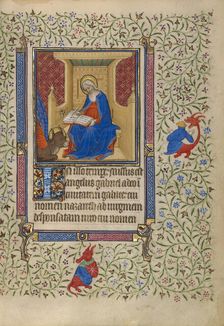 In illo tempr̃. missus est
angelus gabriel a deo i
ciuitatem galilee cui
nomen nazareth ad uirginem
desponsatam uiro cui nomen